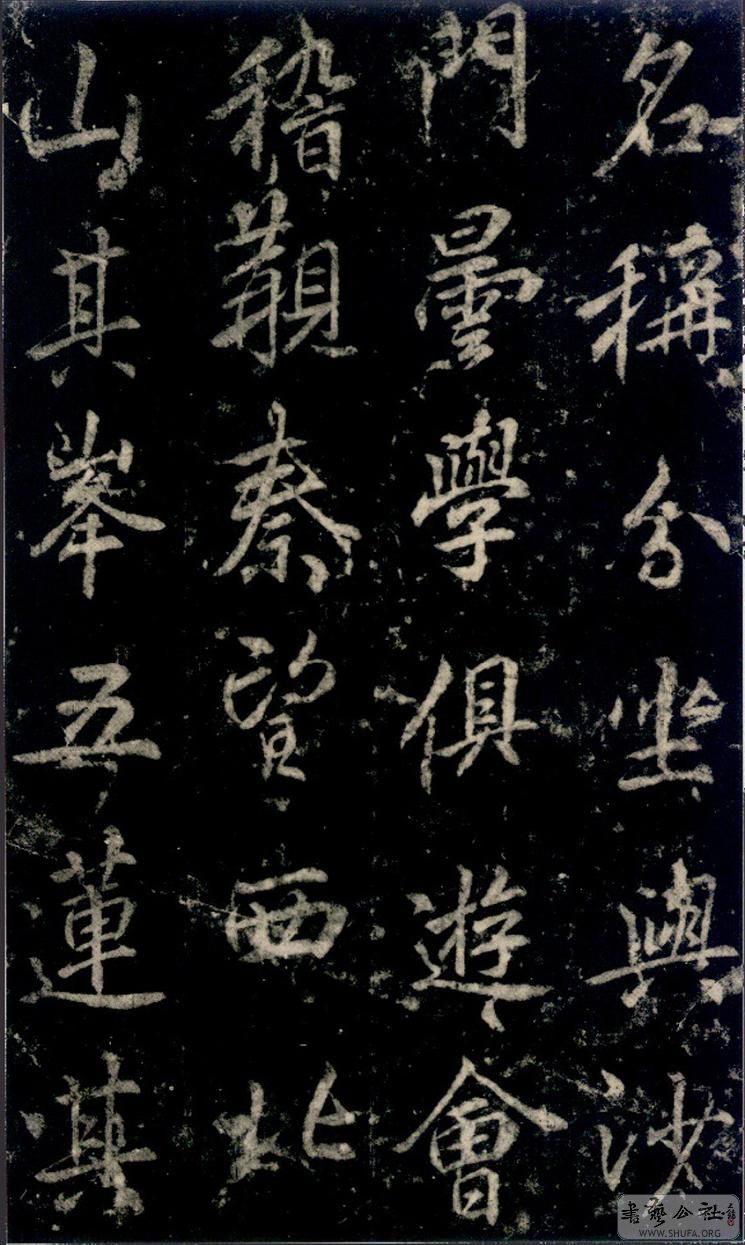 名稱分坐與沙
門曇學俱遊會
稽覯秦望西北
山其峯五蓮其
書藝公社
WWW.SHUFA.ORG